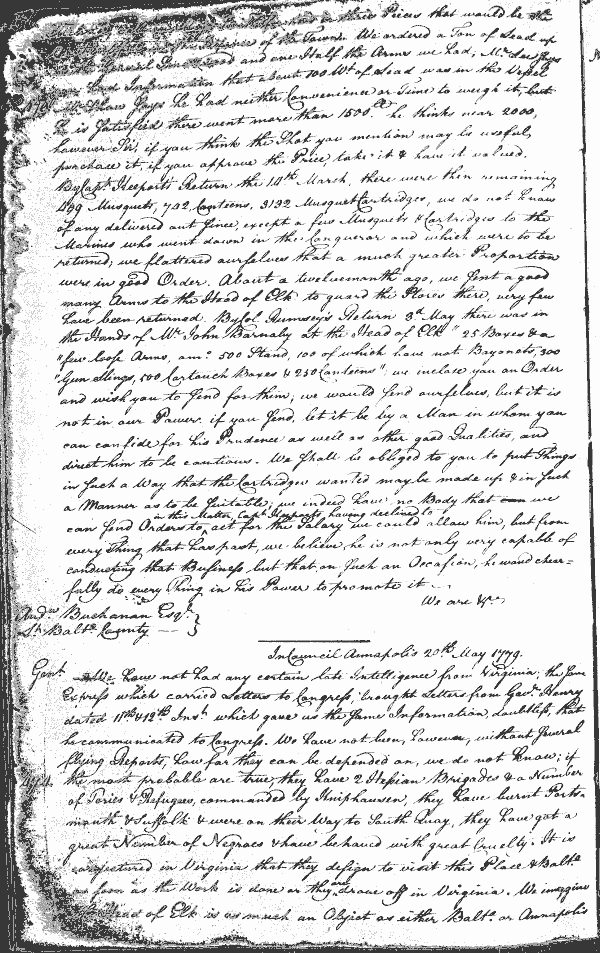 in their Prices that would be the
of the Town. We ordered a Ton of Lead up
and one Half the Arms we had; Mr.
had Information that about 100 Wt. of Lead was in the Vessel
says he had neither Convenience or Time to weigh it, but
he is satisfied there went more than 1500, he thinks near 2000,
however Sir, if you think the Shot you mention may be useful,
purchase it, if you approve the Price, take it & have it valued.
By Capt. Keeports Return the 14th March, there were then remaining
499 Musquets, 742 Canteens, 3132 Musquet Cartridges, we do not know
of any delivered out since, except a few Musquets & Cartridges to the
Marines who went down in the Conqueror and which were to be
returned; we flattered ourselves that a much greater Proportion
were in good Order. About a twelvemonth ago, we sent a good
many Arms to the Head of Elk to guard the Stores there, very few
have been returned. By Col Rumsey's Return 3d. May there was in
the Hands of Mr. John Barnaby at the Head of Elk "25 Boxes & a
"few loose Arms, amo. 500 Stand, 100 of which have not Bayonets, 300
"Gun Slings, 500 Cartouch Boxes & 250 Canteens", we inclose you an Order
and wish you to send for them; we would send ourselves, but it is
not in our Power. if you send, let it be by a Man in whom you
can confide for his Prudence as well as other good Qualities, and
direct him to be cautious. We shall be obliged to you to put Things
in such a Way that the Cartridges wanted may be made up & in such
a Manner as to be suitable; we indeed have no Body that we
in this Matter, Capt. Keeports, having declined to
can send Orders to, act for the Salary we could allow him, but from
every Thing that has past, we believe he is not only very capable of
conducting that Business but that on such an Occasion, he woud chear=
fully do every Thing in his Power to promote it
We are &c.
Andw. Buchanan Esqr.
Lt. Balte. County
In Council Annapolis 20th. May 1779.
Gent. We have not had any certain late Intelligence from Virginia; the same
Express which carried Letters to Congress, brought Letters from Govr. Henry
dated 11th & 12th Inst. which gave us the same Information, doubtless, that
he communicated to Congress. We have not been, however, without several
flying Reports, how far they can be depended on, we do not know; if
the most probable are true, they have 2 Hessian Brigades & a Number
of Tories & Refugees, commanded by Kniphausen, they have burnt Ports=
mouth & Suffolk & were on their Way to South Quay, they have got a
great Number of Negroes & have behaved with great Cruelty. It is
conjectured in Virginia that they design to visit this Place & Balte.
as soon as the Work is done or they are drove off in Virginia. We imagine
Head of Elk is as much an Object as either Balto. or Annapolis